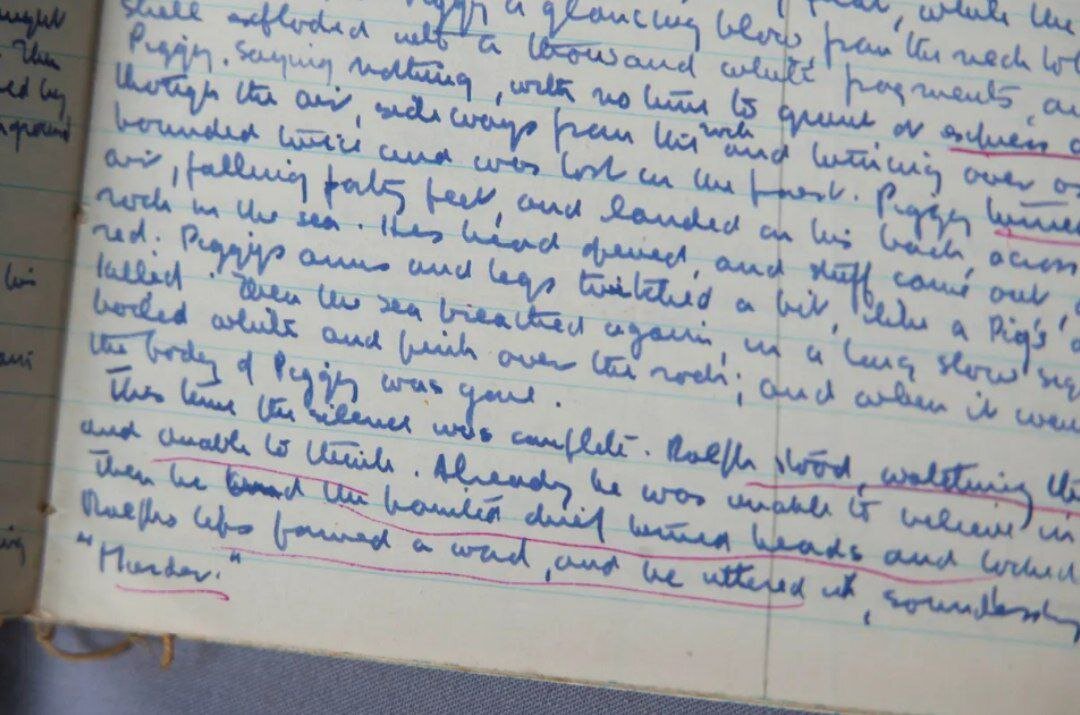 Piggy a glancing blow from the neck to
shell exploded into a thousand white fragments, an
Piggy. Saying nothing, with no time to grunt or
through the air, sideways from the rock and turning over
bounded twice and was lost in the forest. Piggy turned
air, falling forty feet, and landed on his back, across
rock in the sea. His head opened, and stuff came out
red. Piggys arms and legs twitched a bit, like a Pig's
killed. Then the sea breathed again, in a long slow sig
boiled white and pink over the rock; and when it wen
the body of Piggy was gone.
This time the silence was complete. Ralph stood, watching
and unable to think. Already he was unable to believe in
then he the painted chief turned heads and looked
Ralphs lips formed a word, and he uttered it, soundlessly
"Murder."